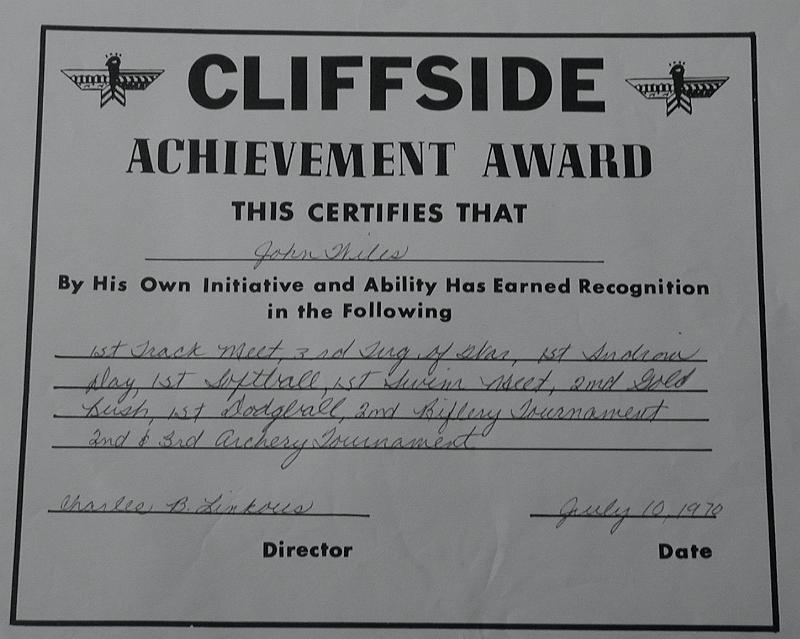 CLIFFSIDE
ACHIEVEMENT AWARD
THIS CERTIFIES THAT
John Wiles
By His Own Initiative and Ability Has Earned Recognition
in the Following
1st Track Meet, 3rd Tug of War, 1st
Day, 1st Softball, 1st Swim Meet, 2nd Gold
Rush, 1st Dodgball, 2nd Riflery Tournament
2nd & 3rd Archery Tournament
Charles B. Linkous July 10, 1970
Director Date